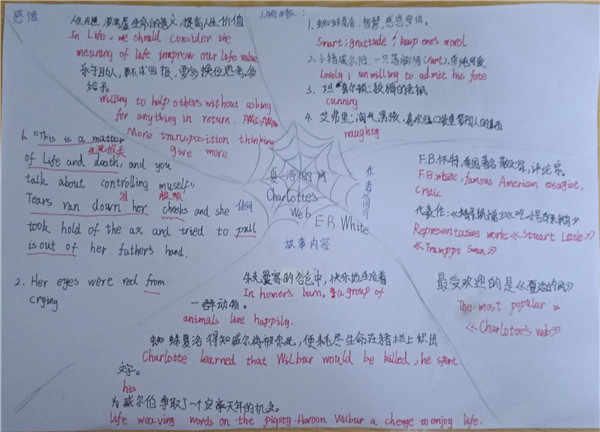 感悟
人生在世,要思考生命的意义,提高人生价值
In Life, we should consider the
meaning of life improve our life value
乐于助人,不求回报,要多换位思考,多
给予
willing to help others without asking
for anything in return.
More transposition thinking
give more
1. "This is a matter
生死攸关
of Life and death, and you
talk about controlling myself"
Tears ran down her cheeks and she
took hold of the ax and tried to pull
is out of her father's hand.
佳句
2. Her eyes were red from
crying
夏洛的网
Charlotte's
Web
E.B White
作者简介
故事内容
1. 蜘蛛夏洛:智慧,感恩守信。
Smart; gratitude; keep one's word
2. 小猪威尔伯:一只落脚猪(runt),单纯可爱
Lovely; unwilling to admit his fate
3. 坦普尔顿:狡猾的老鼠
cunning
4. 艾弗里:淘气男孩,
naughty
E.B.怀特,美国著名散文家,评论家。
E.B.White, famous American essayist,
Critic
代表作:
Representative works <<Stuart Little>>
<<Trumppt Swan>>
最受欢迎的是《夏洛的网》
The most popular is
<<Charlotte's web>>
朱克曼家的谷仓中,快乐地生活着
In homer's barn, a group of
一群动物。
animals live happily.
蜘蛛夏洛得知威尔伯将被杀死,便耗尽生命在猪栏上织出
Charlotte learned that Wilbur would be killed, he spent
文字。
his
为威尔伯争取了一个安享天年的机会。
life weaving words on the pigsty. Wilbur a chenge to enjoy life.